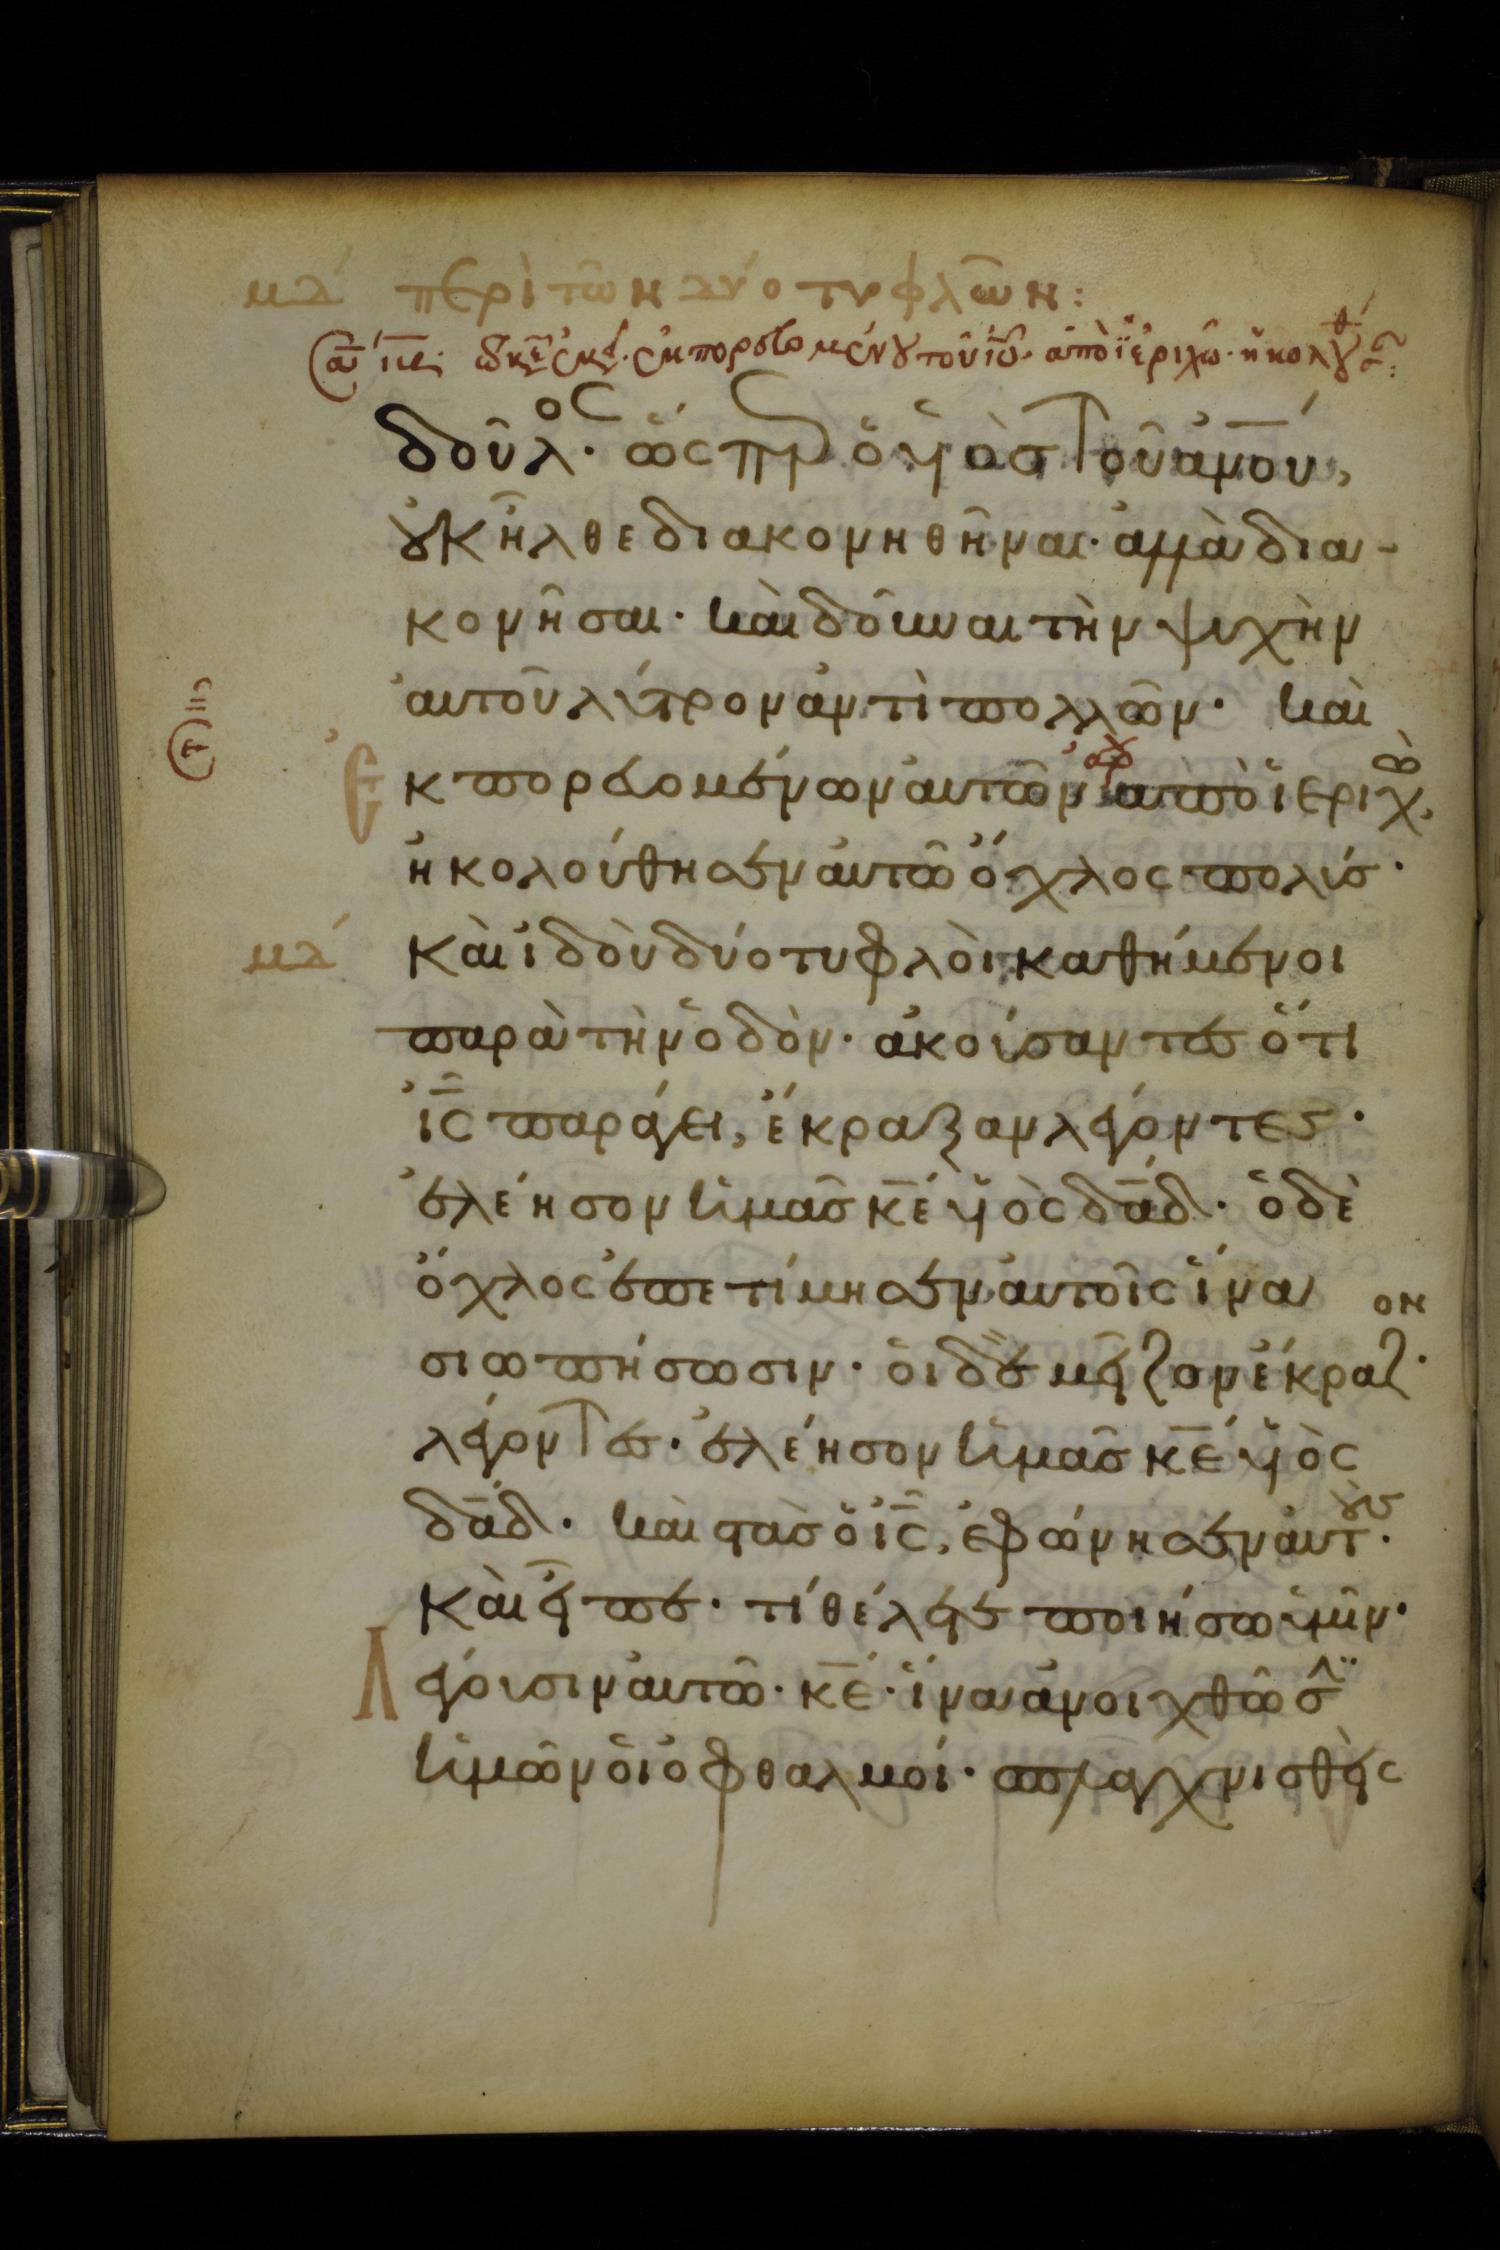 μα΄ περὶ τῶν δύο τυφλῶν:
δοῦλος· ὥσπερ ὁ υἱὸς τοῦ ἀνου,
οὐκ ἦλθε διακονηθῆναι· ἀλλὰ δια-
κονῆσαι· καὶ δοῦναι τὴν ψυχὴν
αὐτοῦ λύτρον ἀντὶ πολλῶν· καὶ
ἐκπορευομένων αὐτῶν ἀπὸ ἱεριχὼ,
ἠκολούθησεν αὐτῶ ὄχλος πολύς·
μα΄ καὶ ἰδοὺ δύο τυφλοὶ καθήμενοι
παρὰ τὴν ὁδὸν· ἀκούσαντες ὅτι
ἰς παράγει, ἔκραξαν λέγοντες·
ἐλέησον ἡμᾶς κε υἱὸς δαδ· ὁ δὲ
ὄχλος ἐπετίμησεν αὐτοῖς ἵνα
σιωπήσωσιν· οἱ δὲ μεῖζον ἔκραζον·
λέγοντες· ἐλέησον ἡμᾶς κε υἱὸς
δαδ· καὶ στὰς ὁ ις, ἐφώνησεν αὐτοὺς·
καὶ εἶπε· τί θέλετε ποιήσω ὑμῖν·
λέγουσιν αὐτῶ· κε· ἵνα ἀνοιχθῶσιν
ἡμῶν οἱ ὀφθαλμοί· σπλαγχνισθεὶς